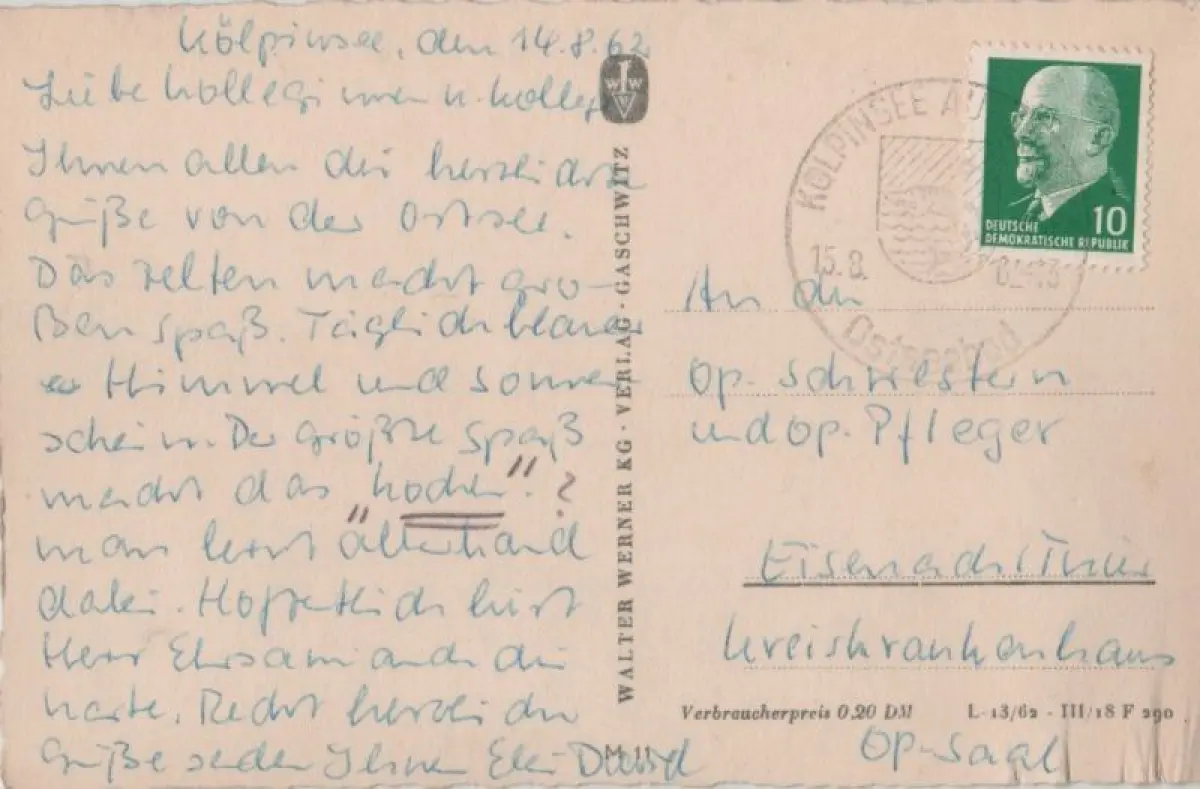 Kölpinsee, den 14.8.62
Liebe Kolleginnen u. Kolleg
Ihnen allen die herzlichen
Grüße von der Ostsee.
Das Zelten macht gro-
ßen Spaß. Täglich blauer
Himmel und Sonnen-
schein. Der größte Spaß
macht das "Kochen". ?
Man lernt allerhand
dabei. Hoffentlich liest
Herr auch die
Karte. Recht herzliche
Grüße senden Ihnen
WALTER WERNER KG · VERLAG · GASCHWITZ
M 11
KÖLPINSEE AU
15.8.
Ostseebad
10
DEUTSCHE
DEMOKRATISCHE REPUBLIK
An die
Op. Schwestern
und Op. Pfleger
Eisenach/Thür
Kreiskrankenhaus
Verbraucherpreis 0.20 DM L 13/62 - III/18 F 290
Op-Saal